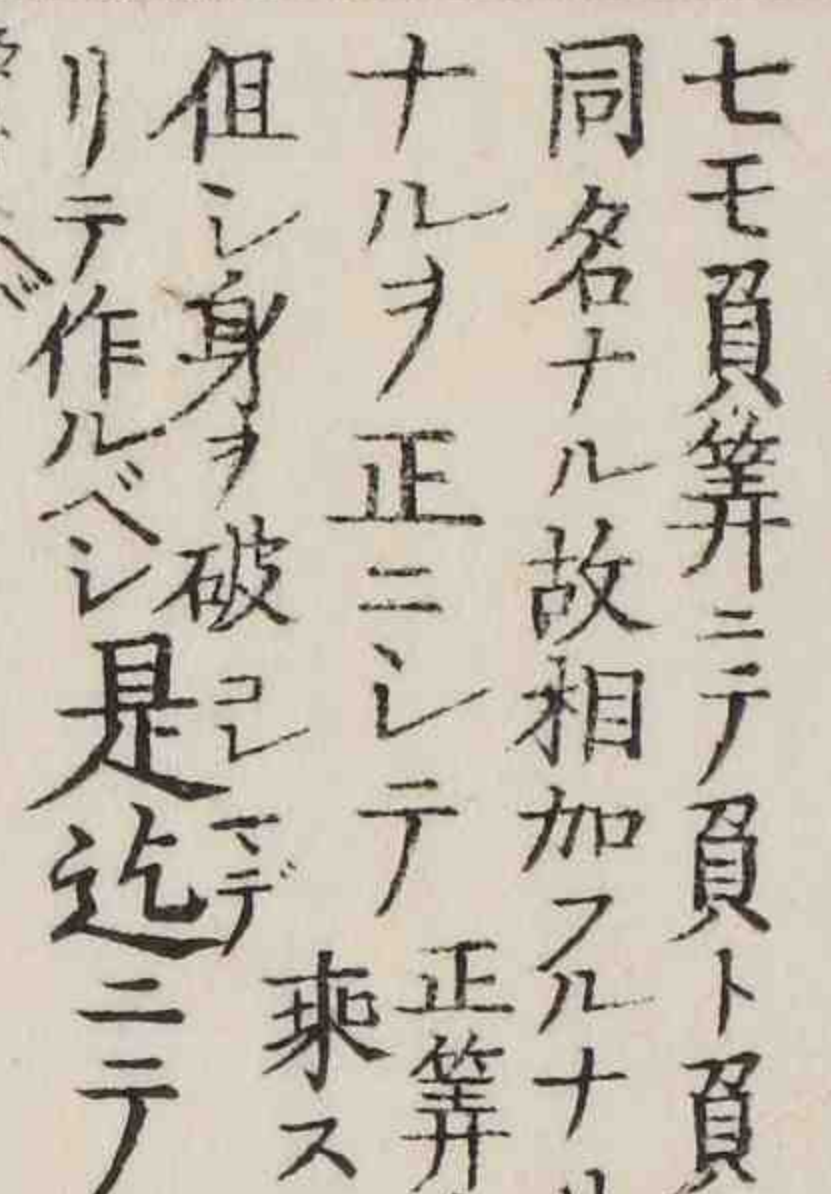 七モ負筭ニテ負ト負
同名ナル故相加フルナ
ナルヲ正ニシテ
正筭
乘ス
但シ身ヲ破
コレマデ
リテ作ルベシ是迄ニテ